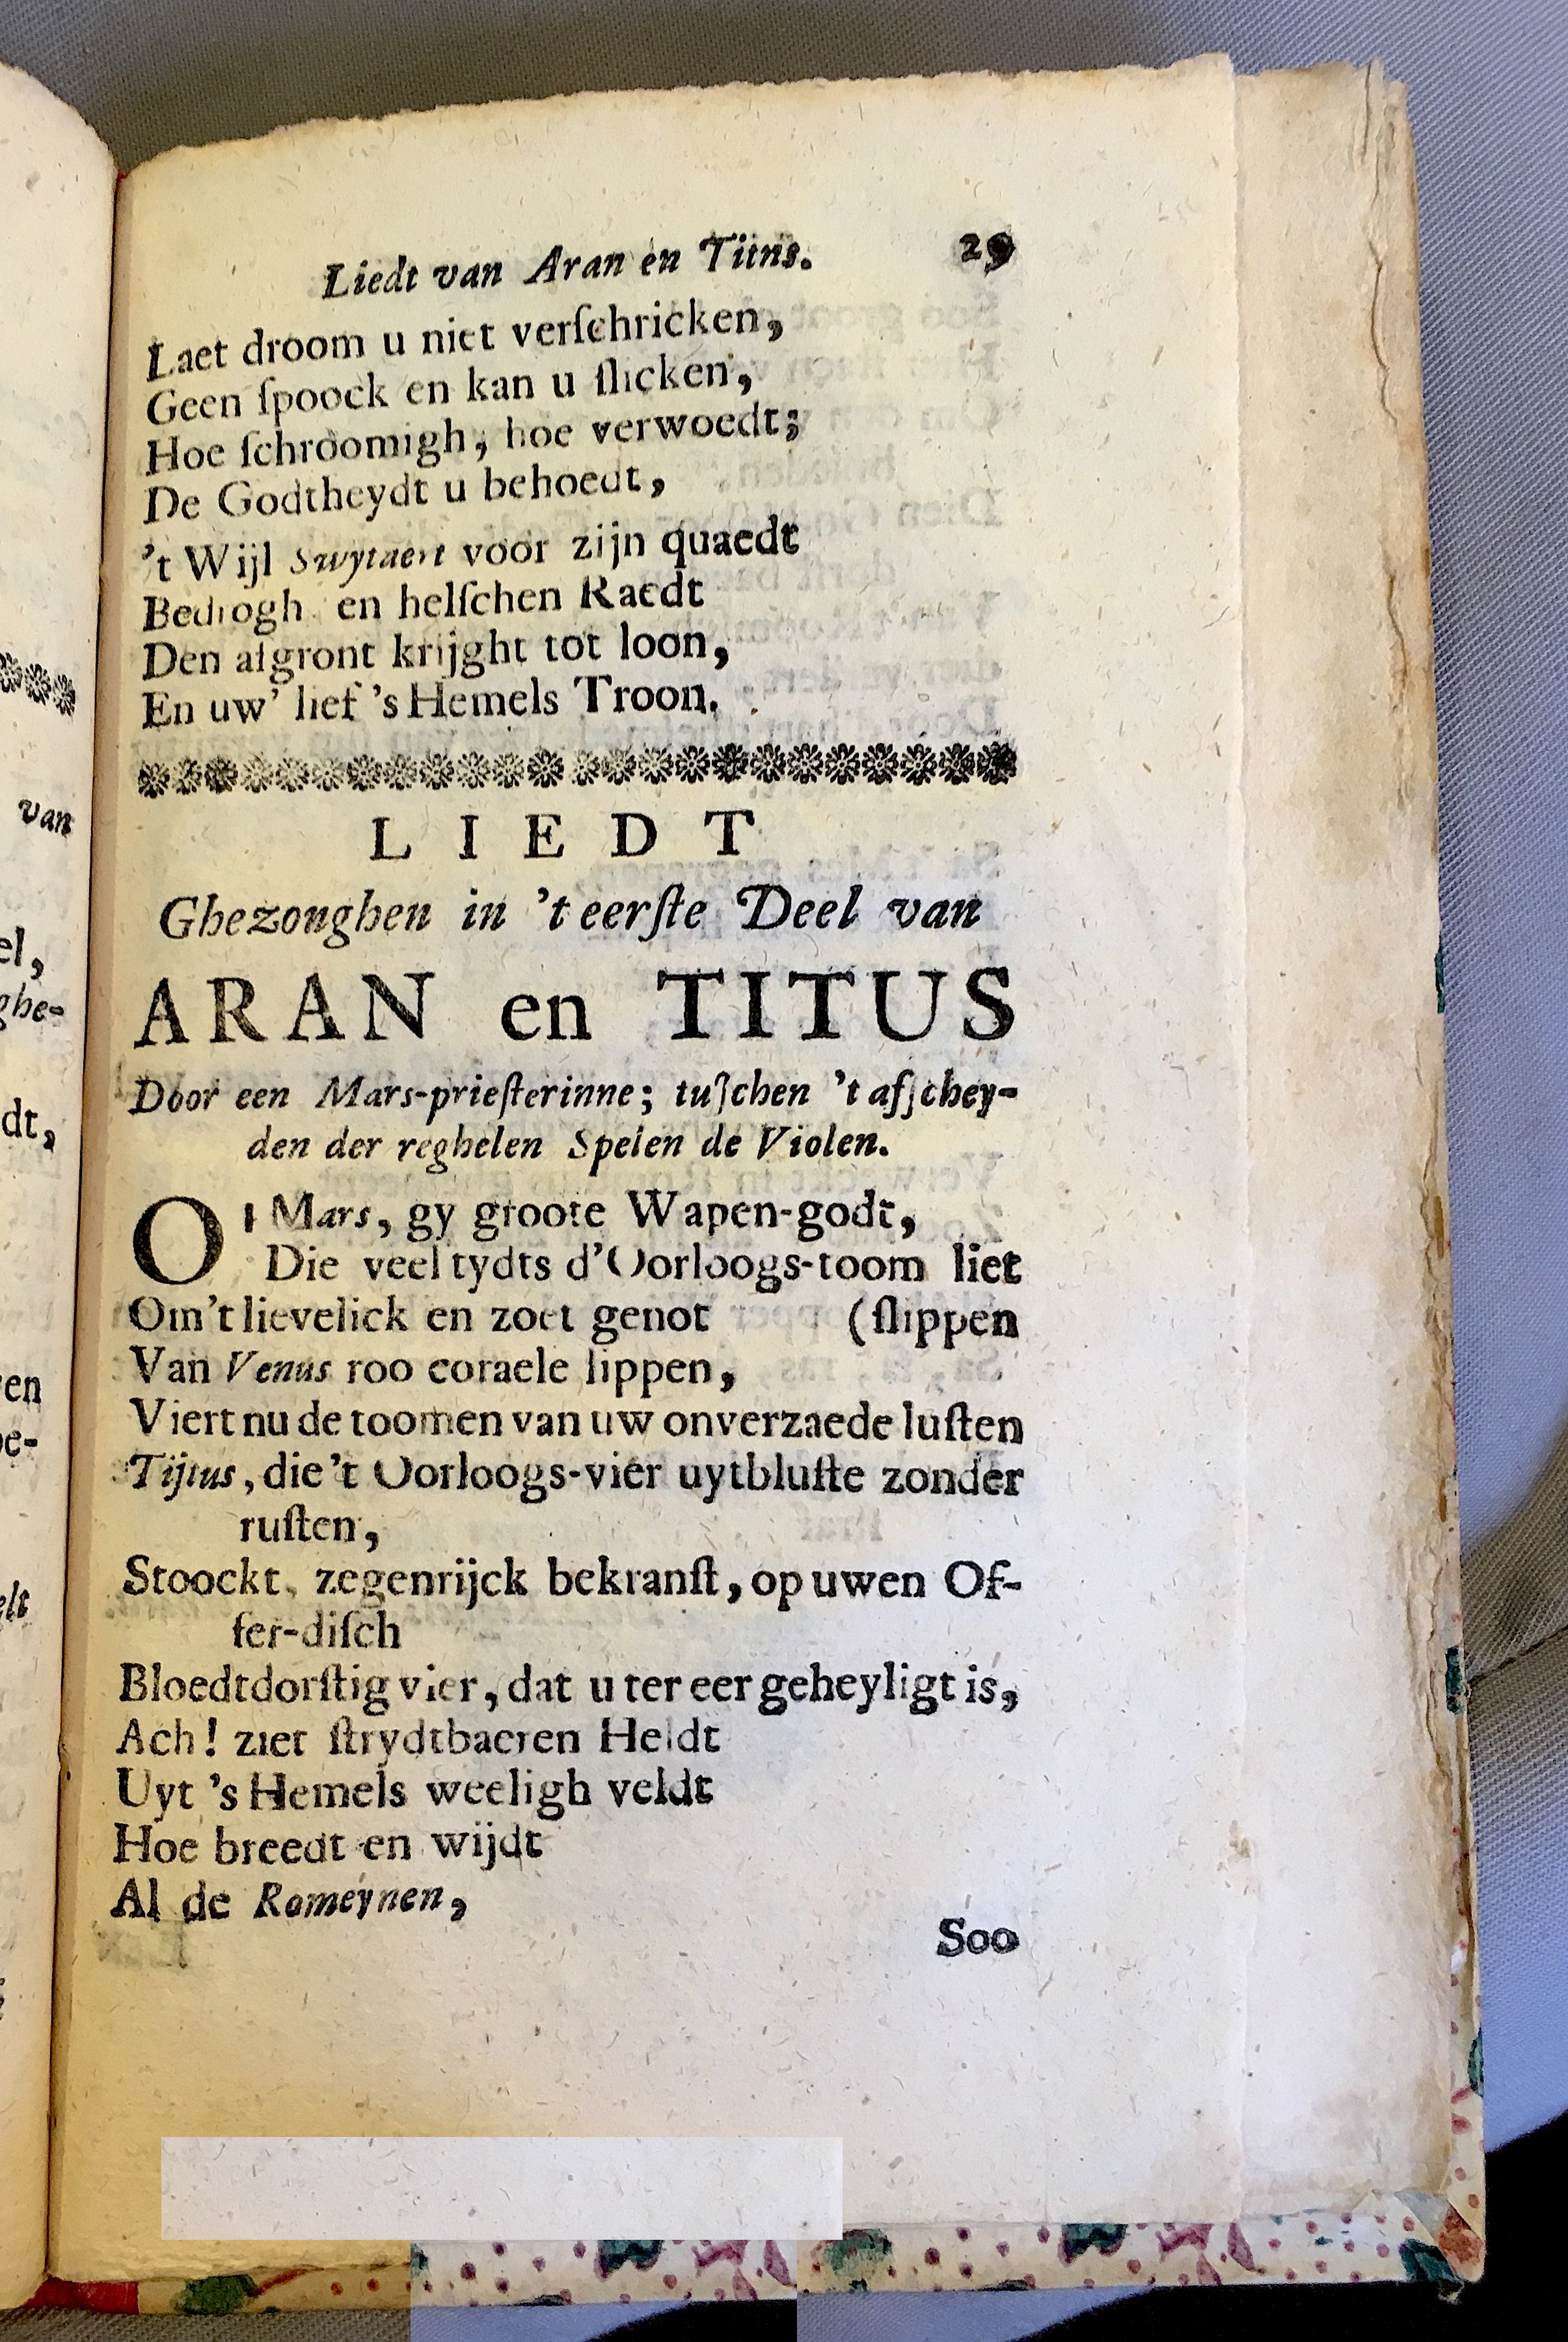 Liedt van Aran en Titns. 29
Laet droom u niet verſchricken,
Geen ſpoock en kan u ſlicken,
Hoe ſchroomigh, hoe verwoedt;
De Godtheydt u behoedt,
't Wijl Swytaert voor zijn quaedt
Bedrogh en helſchen Raedt
Den afgront krijght tot loon,
En uw' lief 's Hemels Troon.
LIEDT
Ghezonghen in 't eerſte Deel van
ARAN en TITUS
Door een Mars-prieſterinne; tuſchen 't afſchey-
den der reghelen Spelen de Violen.
O! Mars, gy groote Wapen-godt,
Die veel tydts d'Oorloogs-toom liet
Om't lievelick en zoet genot (ſlippen
Van Venus roo coraele lippen,
Viert nu de toomen van uw onverzaede luſten
Tijtus, die 't Oorloogs-vier uytbluſte zonder
ruſten,
Stoockt, zegenrijck bekranſt, op uwen Of-
fer-diſch
Bloedtdorſtig vier, dat u ter eer geheyligt is,
Ach! ziet ſtrydtbaeren Heldt
Uyt 's Hemels weeligh veldt
Hoe breedt en wijdt
Al de Romeynen,
Soo
van
el,
ghe-
dt,
en
be-
elt